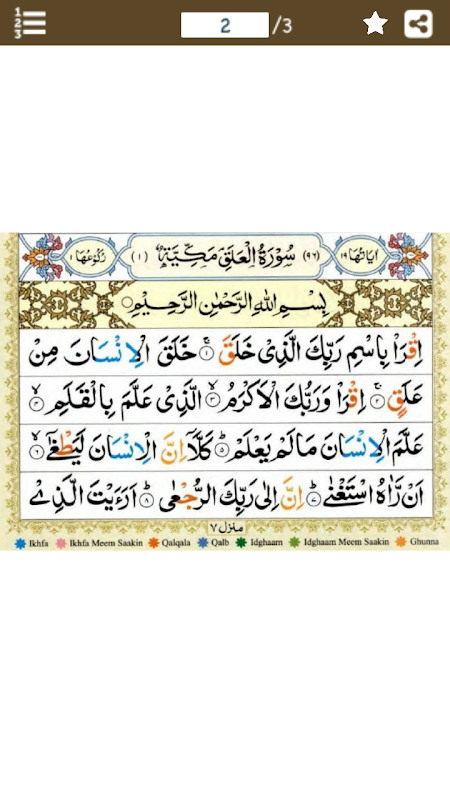 2 /3
اٰیَاتُهَا ١٩ (٩٦) سُوْرَةُ الْعَلَقِ مَكِّيَّةٌ (١) رُكُوْعُهَا ١
بِسْمِ اللّٰهِ الرَّحْمٰنِ الرَّحِيْمِ
اِقْرَاْ بِاسْمِ رَبِّكَ الَّذِیْ خَلَقَ ۚ ١ خَلَقَ الْاِنْسَانَ مِنْ
عَلَقٍ ۚ ٢ اِقْرَاْ وَرَبُّكَ الْاَكْرَمُ ۙ ٣ الَّذِیْ عَلَّمَ بِالْقَلَمِ ۙ ٤
عَلَّمَ الْاِنْسَانَ مَا لَمْ یَعْلَمْ ؕ ٥ كَلَّاۤ اِنَّ الْاِنْسَانَ لَیَطْغٰۤی ۙ ٦
اَنْ رَّاٰهُ اسْتَغْنٰی ؕ ٧ اِنَّ اِلٰی رَبِّكَ الرُّجْعٰی ؕ ٨ اَرَءَیْتَ الَّذِیْ
منزل ٧
Ikhfa Ikhfa Meem Saakin Qalqala Qalb Idghaam Idghaam Meem Saakin Ghunna